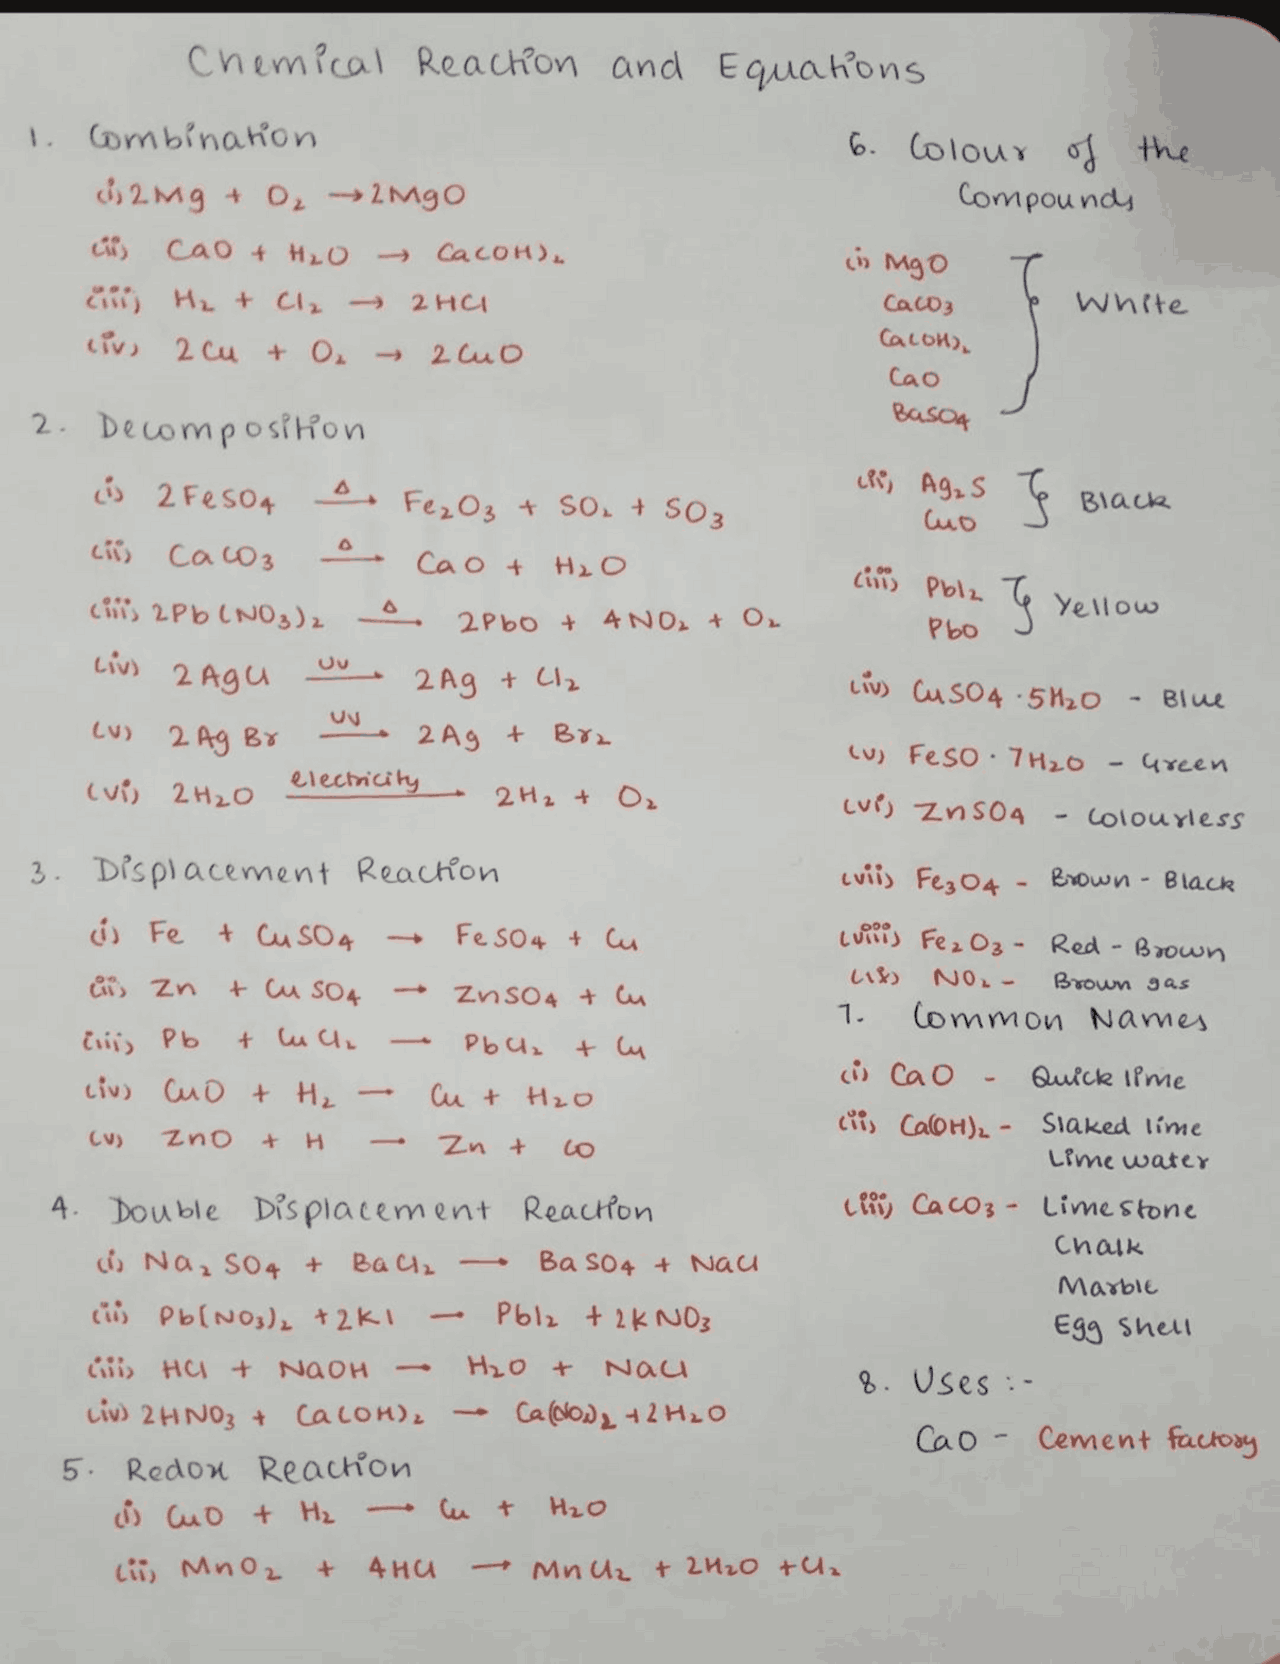 Chemical Reaction and Equations
1. Combination
(i) 2Mg + O₂ → 2MgO
(ii) CaO + H₂O → Ca(OH)₂
(iii) H₂ + Cl₂ → 2HCl
(iv) 2Cu + O₂ → 2CuO
2. Decomposition
(i) 2FeSO₄ —Δ→ Fe₂O₃ + SO₂ + SO₃
(ii) CaCO₃ —Δ→ CaO + H₂O
(iii) 2Pb(NO₃)₂ —Δ→ 2PbO + 4NO₂ + O₂
(iv) 2AgCl —UV→ 2Ag + Cl₂
(v) 2AgBr —UV→ 2Ag + Br₂
(vi) 2H₂O —electricity→ 2H₂ + O₂
3. Displacement Reaction
(i) Fe + CuSO₄ → FeSO₄ + Cu
(ii) Zn + CuSO₄ → ZnSO₄ + Cu
(iii) Pb + CuCl₂ → PbCl₂ + Cu
(iv) CuO + H₂ → Cu + H₂O
(v) ZnO + H → Zn + CO
4. Double Displacement Reaction
(i) Na₂SO₄ + BaCl₂ → BaSO₄ + NaCl
(ii) Pb(NO₃)₂ + 2KI → PbI₂ + 2KNO₃
(iii) HCl + NaOH → H₂O + NaCl
(iv) 2HNO₃ + Ca(OH)₂ → Ca(NO₃)₂ + 2H₂O
5. Redox Reaction
(i) CuO + H₂ → Cu + H₂O
(ii) MnO₂ + 4HCl → MnCl₂ + 2H₂O + Cl₂
6. Colour of the
Compounds
(i) MgO
CaCO₃
Ca(OH)₂
CaO
BaSO₄
} White
(ii) Ag₂S
CuO
} Black
(iii) PbI₂
PbO
} Yellow
(iv) CuSO₄·5H₂O - Blue
(v) FeSO·7H₂O - Green
(vi) ZnSO₄ - Colourless
(vii) Fe₃O₄ - Brown - Black
(viii) Fe₂O₃ - Red - Brown
(ix) NO₂ - Brown gas
7. Common Names
(i) CaO - Quick lime
(ii) Ca(OH)₂ - Slaked lime
Lime water
(iii) CaCO₃ - Limestone
Chalk
Marble
Egg Shell
8. Uses :-
CaO - Cement factory